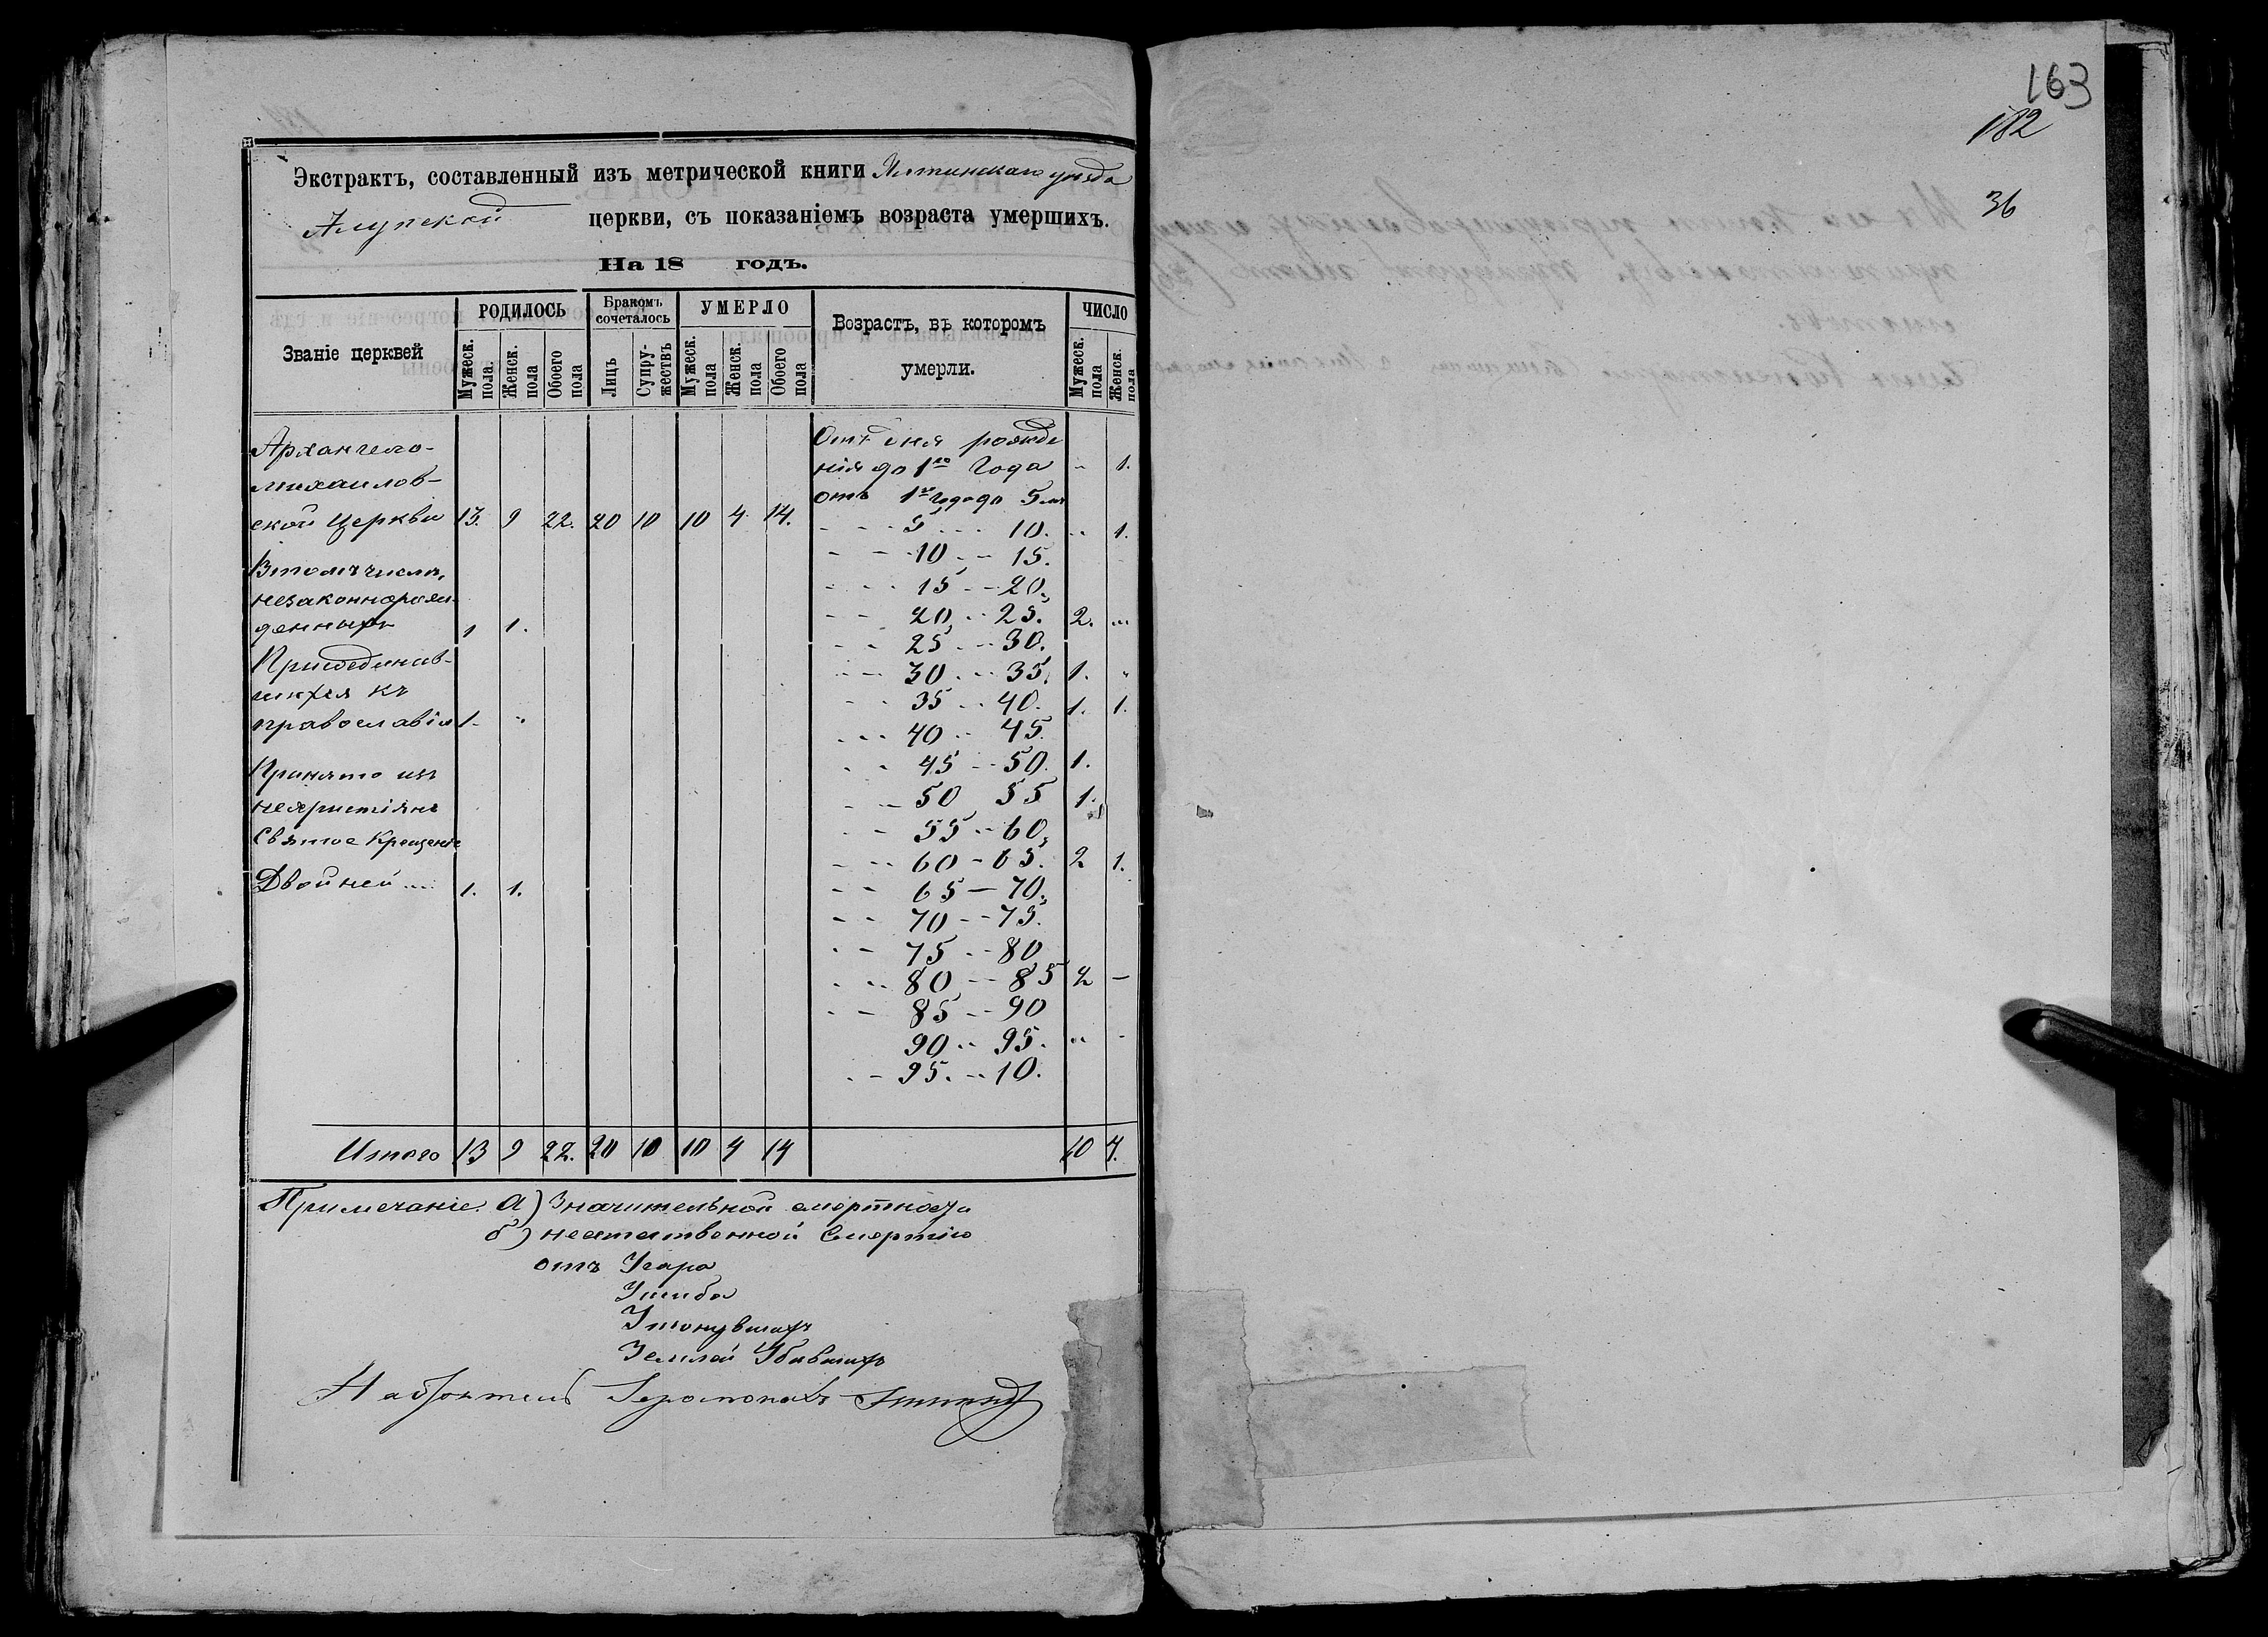 Экстрактъ, составленный изъ метрической книги Ялтинскаго уѣзда
Алупской церкви, съ показаніемъ возраста умершихъ.
На 18 годъ.
Званіе церквей
РОДИЛОСЬ
Мужеск. пола.
Женск. пола
Обоего пола
Бракомъ сочеталось
Лицъ
Супружествъ
УМЕРЛО
Мужеск. пола
Женск. пола
Обоего пола
Возрастъ, въ которомъ умерли.
ЧИСЛО
Мужеск. пола
Женск. пола
Архангело-
михаилов-
ской Церкви 13. 9 22. 20 10 10 4 14.
Втомъ числѣ,
незаконнорож-
денныхъ 1 1.
Присоединив-
шихся къ
православію 1. "
Принято изъ
нехристіянъ
Святое Крещеніе
Двойней .... 1. 1.
Отъ дня рожде
нія до 1го Года " 1.
отъ 1го года до 5 лѣ
- - - 5 - - - 10. " 1.
- - 10 - - 15.
- - - 15 - - 20.
- - 20 - - 25. 2. "
- - 25 - - 30.
- - - 30 - - 35. 1. "
- - 35 - - 40. 1. 1.
- - - 40 - - 45.
- - 45 - - 50. 1.
- - 50 55 1.
- - 55 - - 60.
- - - 60 - 65. 2 1.
- - 65 - 70.
- - 70 - - 75.
- - 75 - - 80
- - - 80 - - 85 2 -
- - 85 - - 90
90 - - 95. " -
- - 95. - - 10.
Итого 13 9 22. 20 10 10 4 14 10 4.
Примечаніе а) Значительной смертности
б) неестественной Смертію
отъ Угара
Ушиба
Утонувшихъ
Землей Убившихъ
Настоятель Іеромонахъ
163
182
36